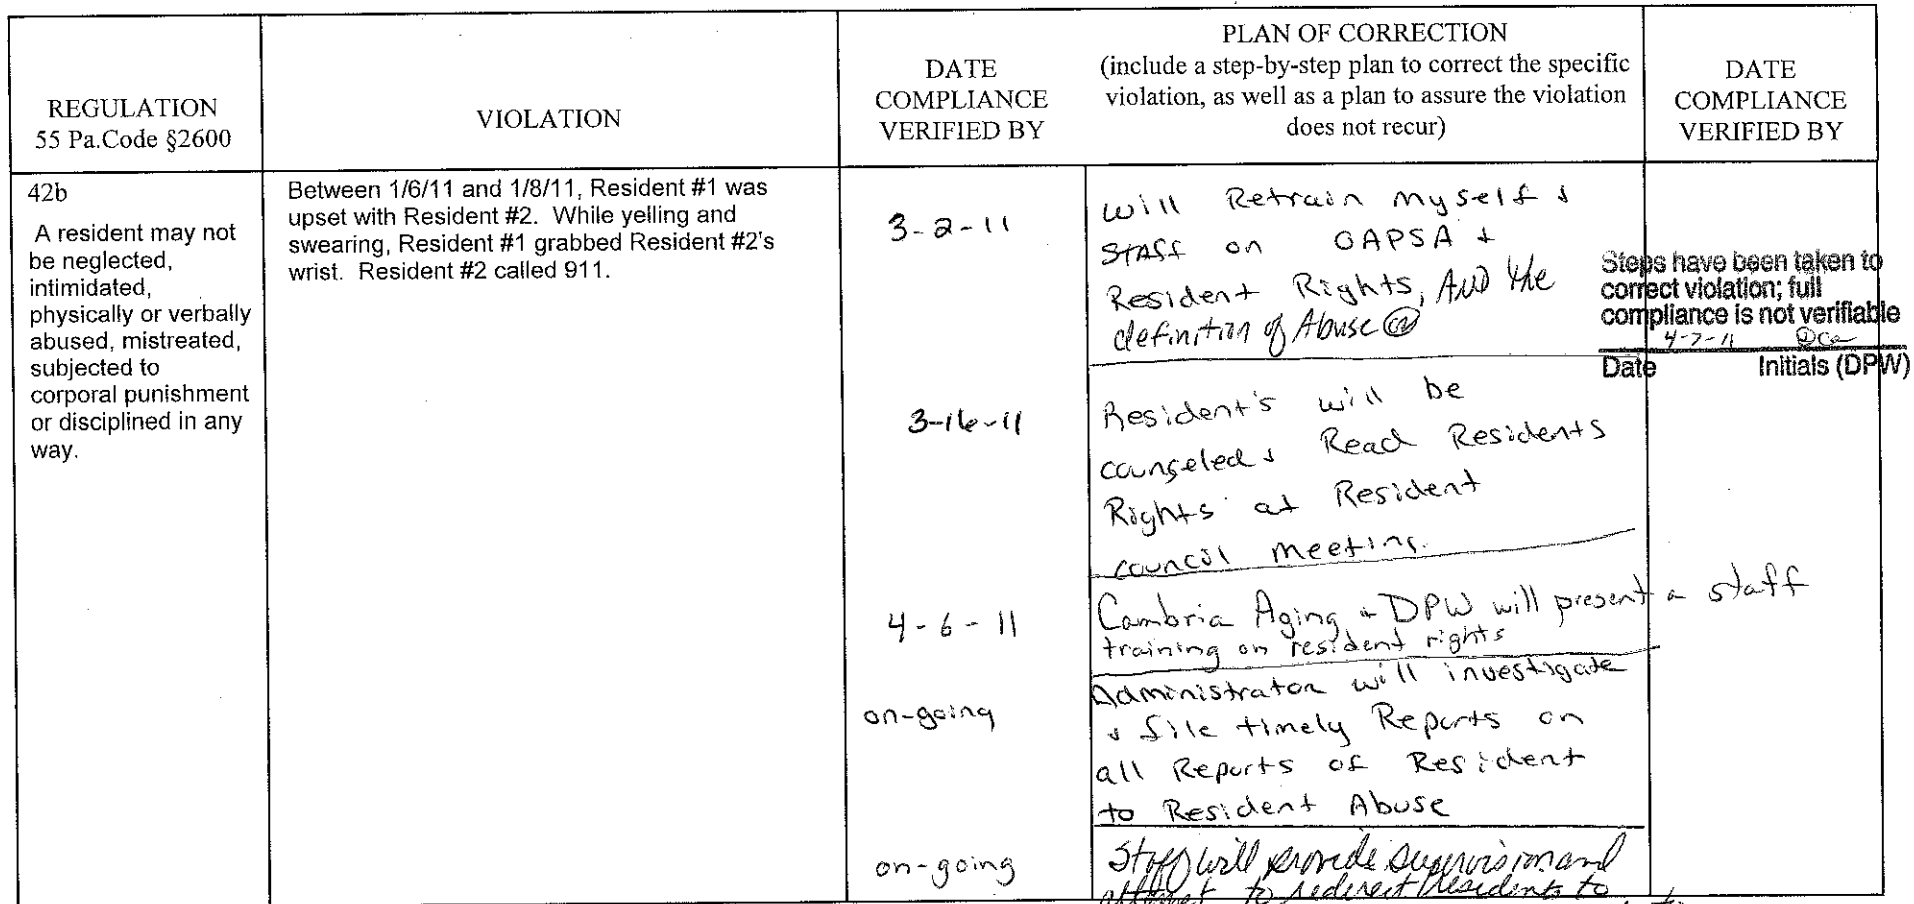 REGULATION
55 Pa.Code §2600
VIOLATION
DATE
COMPLIANCE
VERIFIED BY
PLAN OF CORRECTION
(include a step-by-step plan to correct the specific
violation, as well as a plan to assure the violation
does not recur)
DATE
COMPLIANCE
VERIFIED BY
42b
A resident may not
be neglected,
intimidated,
physically or verbally
abused, mistreated,
subjected to
corporal punishment
or disciplined in any
way.
Between 1/6/11 and 1/8/11, Resident #1 was
upset with Resident #2. While yelling and
swearing, Resident #1 grabbed Resident #2's
wrist. Resident #2 called 911.
3-2-11
will Retrain myself &
Staff on OAPSA +
Resident Rights, AND the
definition of Abuse
Steps have been taken to
correct violation; full
compliance is not verifiable
4-7-11
Date Initials (DPW)
3-16-11
Resident's will be
counseled & Read Residents
Rights at Resident
council meeting.
4-6-11
Cambria Aging + DPW will present a staff
training on resident rights
on-going
Administrator will investigate
& file timely Reports on
all Reports of Resident
to Resident Abuse
on-going
Staff will provide supervision and
attempt to redirect Residents to